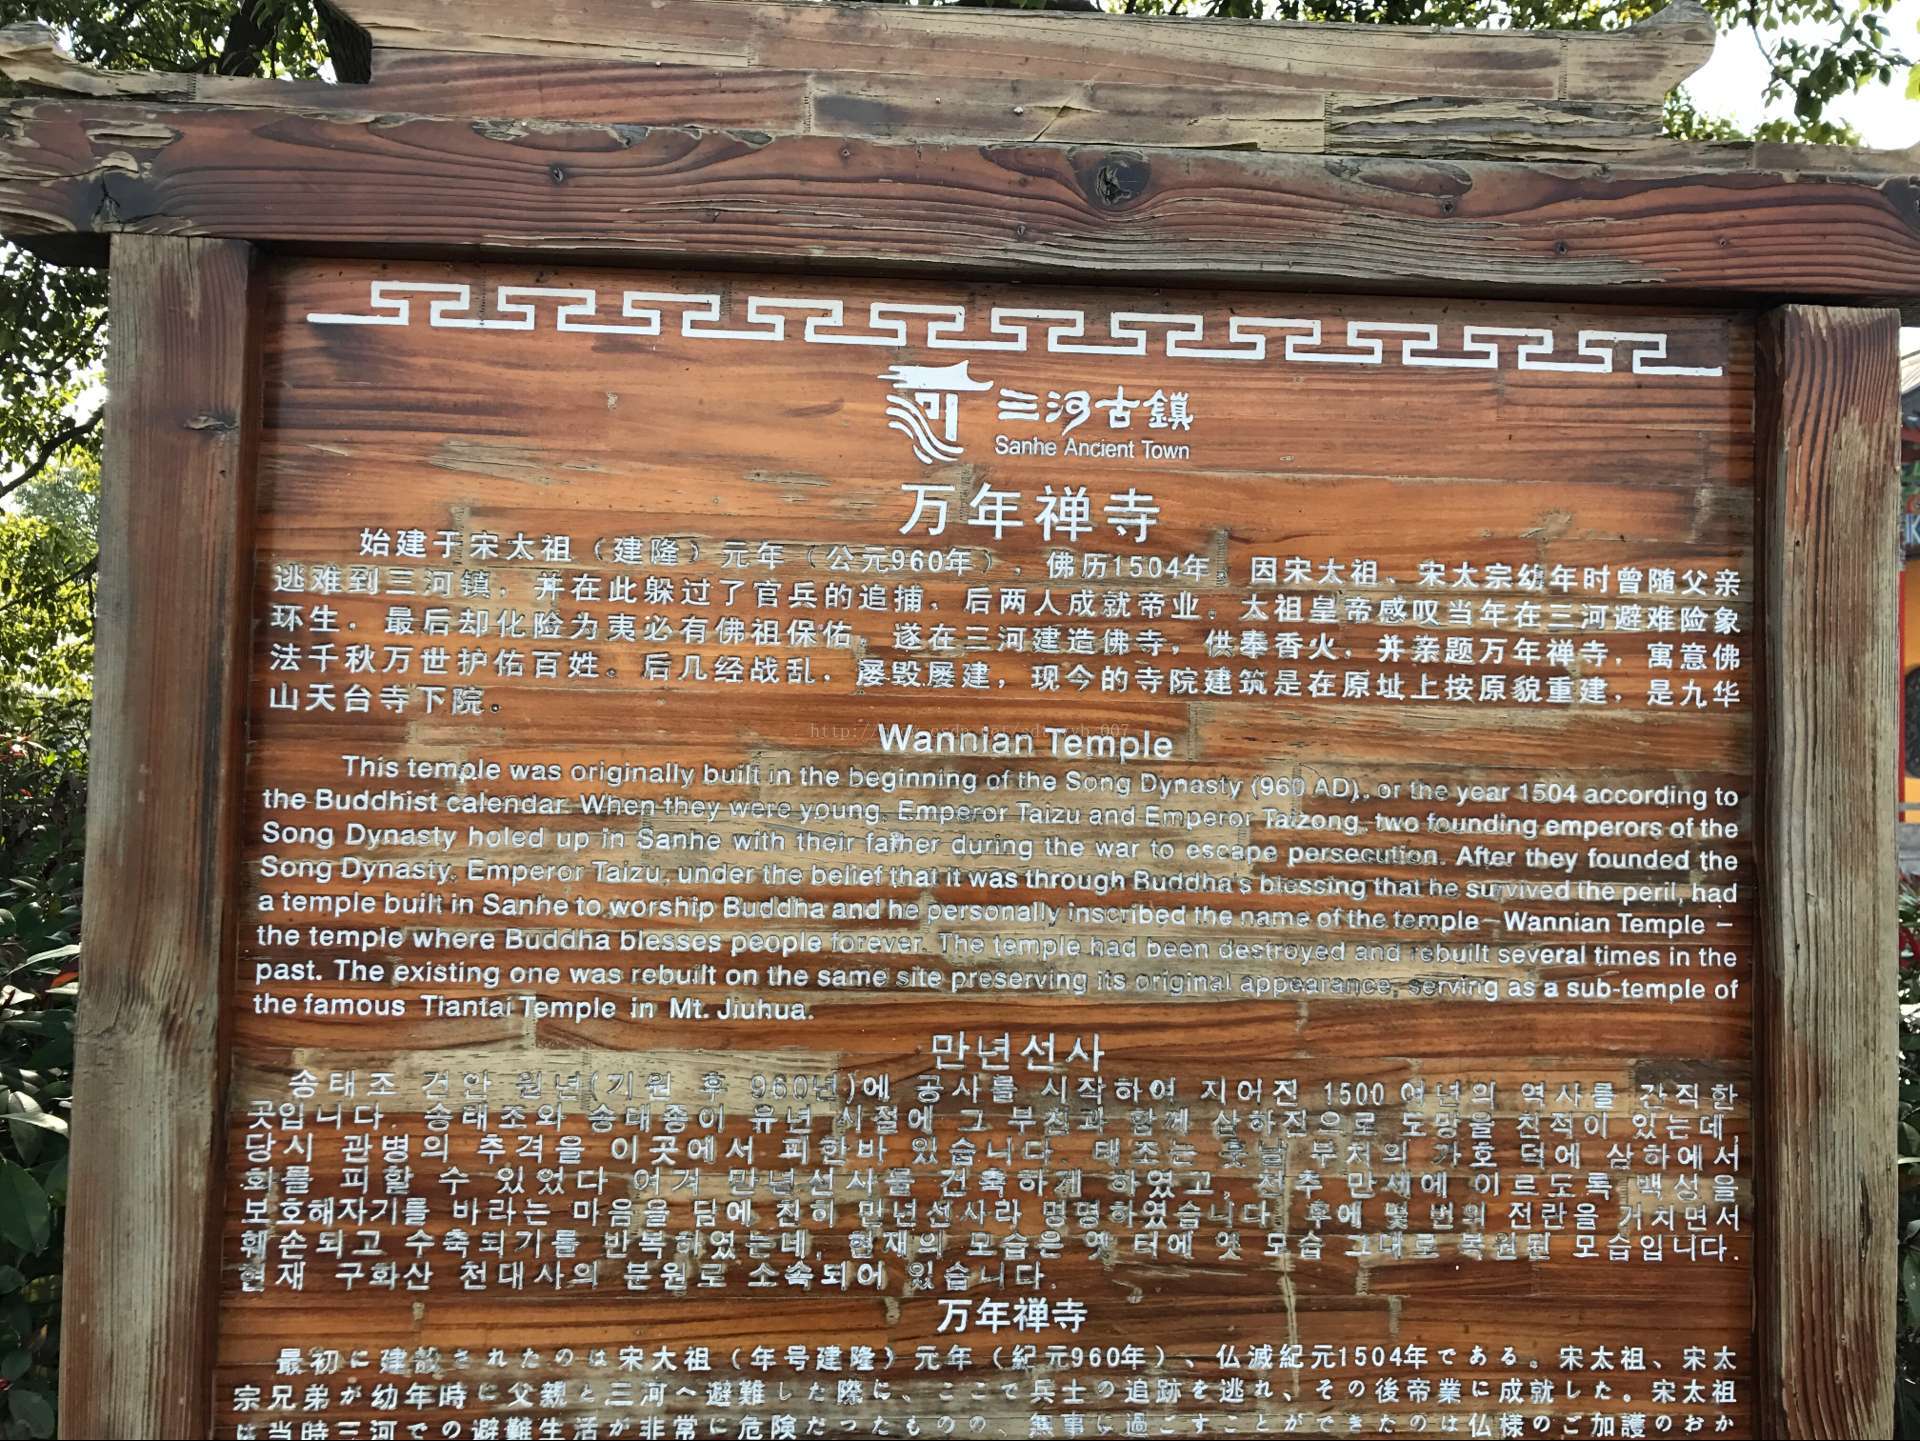 三河古鎮
Sanhe Ancient Town
万年禅寺
始建于宋太祖（建隆）元年（公元960年），佛历1504年。因宋太祖、宋太宗幼年时曾随父亲
逃难到三河镇，并在此躲过了官兵的追捕，后两人成就帝业。太祖皇帝感叹当年在三河避难险象
环生，最后却化险为夷必有佛祖保佑。遂在三河建造佛寺，供奉香火，并亲题万年禅寺，寓意佛
法千秋万世护佑百姓。后几经战乱，屡毁屡建，现今的寺院建筑是在原址上按原貌重建，是九华
山天台寺下院。
Wannian Temple
This temple was originally built in the beginning of the Song Dynasty (960 AD), or the year 1504 according to
the Buddhist calendar. When they were young, Emperor Taizu and Emperor Taizong, two founding emperors of the
Song Dynasty holed up in Sanhe with their father during the war to escape persecution. After they founded the
Song Dynasty, Emperor Taizu, under the belief that it was through Buddha's blessing that he survived the peril, had
a temple built in Sanhe to worship Buddha and he personally inscribed the name of the temple – Wannian Temple –
the temple where Buddha blesses people forever. The temple had been destroyed and rebuilt several times in the
past. The existing one was rebuilt on the same site preserving its original appearance, serving as a sub-temple of
the famous Tiantai Temple in Mt. Jiuhua.
만년선사
송태조 건안 원년(기원 후 960년)에 공사를 시작하여 지어진 1500 여년의 역사를 간직한
곳입니다. 송태조와 송태종이 유년 시절에 그 부친과 함께 삼하진으로 도망을 친적이 있는데,
당시 관병의 추격을 이곳에서 피한바 있습니다. 태조는 훗날 부처의 가호 덕에 삼하에서
화를 피할 수 있었다 여겨 만년선사를 건축하게 하였고, 천추 만세에 이르도록 백성을
보호해자기를 바라는 마음을 담에 친히 만년선사라 명명하였습니다. 후에 몇 번의 전란을 거치면서
훼손되고 수축되기를 반복하였는네, 현재의 모습은 옛 터에 옛 모습 그대로 복원된 모습입니다.
현재 구화산 천대사의 분원로 소속되어 있습니다.
万年禅寺
最初に建設されたのは宋太祖（年号建隆）元年（紀元960年）、仏滅紀元1504年である。宋太祖、宋太
宗兄弟が幼年時に父親と三河へ避難した際に、ここで兵士の追跡を逃れ、その後帝業に成就した。宋太祖
は当時三河での避難生活が非常に危険だったものの、無事に過ごすことができたのは仏様のご加護のおか